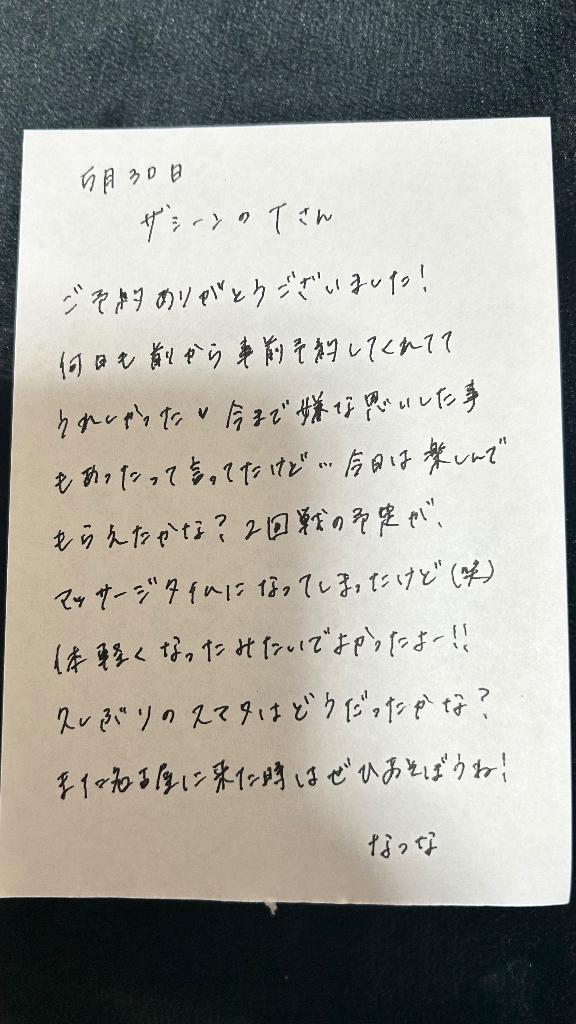 5月30日
ザシーンのTさん
ご予約ありがとうございました!
何日も前から事前予約してくれてて
うれしかった♥今まで嫌な思いした事
もあったって言ってたけど…今日は楽しんで
もらえたかな?2回戦の予定が、
マッサージタイムになってしまったけど(笑)
体軽くなったみたいでよかったよー!!
久しぶりのスマタはどうだったかな?
また名古屋に来た時はぜひあそぼうね!
なつな